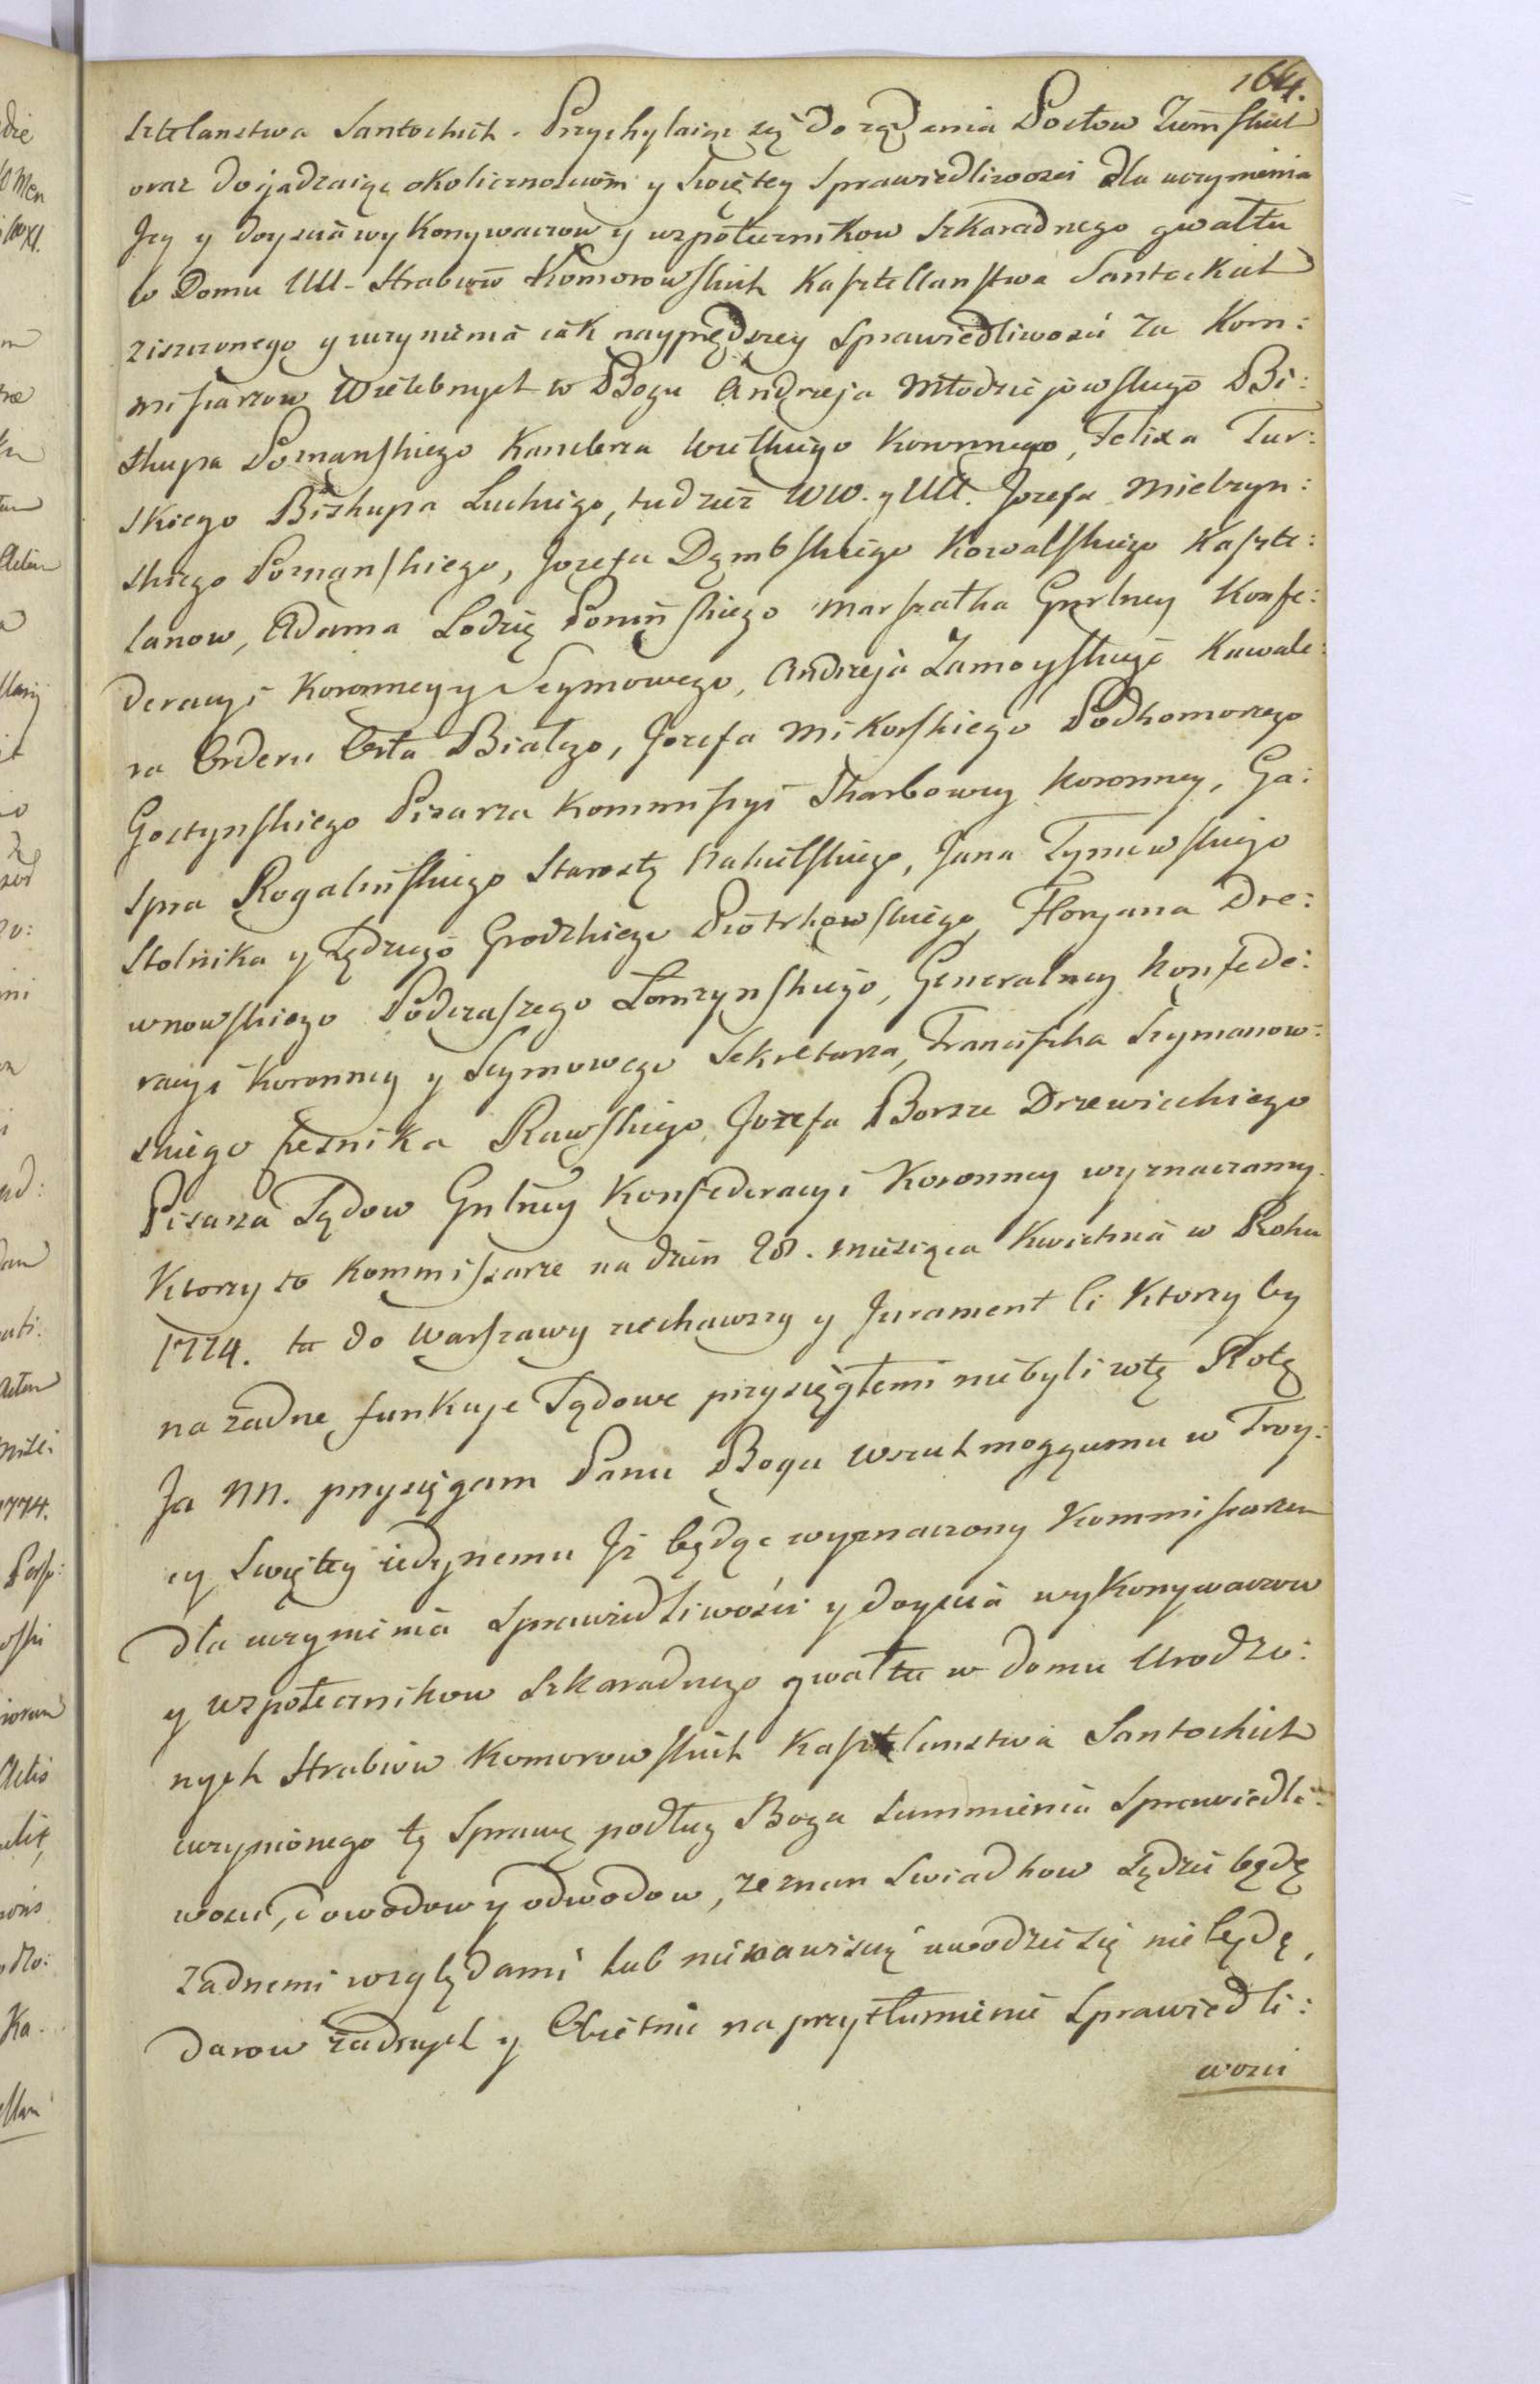 1664.
sztelanstwa Santockich. Przychylaiąc się do rządania Posłow Ziemskich
oraz dogadzaiąc okolicznosciom y Swiętey Sprawiedliwosci dla uczynienia
Jey y doyscia wykonywaczow y wspołecznikow szkaradnego gwałtu
w Domu UU. Hrabiow Komorowskich Kasztellanstwa Santockich
ziszczonego y uczynienia iak nayprędszey Sprawiedliwosci za Kom:
missarzow Wielebnych w Bogu Andrzeja Młodziejowskiego Bi:
skupa Poznanskiego Kanclerza Wielkiego Koronnego, Felixa Tur:
skiego Biskupa Luckiego, tudzież WW. y UU. Jozefa Mielzyn:
skiego Poznanskiego, Jozefa Dąmbskiego Kowalskiego Kaszte:
lanow, Adama Lodzię Poninskiego Marszałka Gnrlney Konfe:
deracyi Koronney y Seymowego, Andrzeja Zamoyskiego Kawale:
ra Orderu Orła Białego, Jozefa Mikorskiego Podkomorzego
Gostynskiego Pisarza Kommissyi Skarbowey Koronney, Ga:
spra Rogalinskiego Starostę Nakielskiego, Jana Tymowskiego
Stolnika y Sędziego Grodzkiego Piotrkowskiego, Floryana Dre:
wnowskiego Podczaszego Łomzynskiego, Generalney Konfede:
racyi Koronney y Seymowego Sekretarza, Franciszka Szymanow:
skiego Czesnika Rawskiego, Jozefa Borsze Drzewickiego
Pisarza Sądow Gnlney Konfederacyi Koronney wyznaczamy.
Ktorzy to Kommissarze na dzien 28. miesiąca Kwietnia w Roku
1774. tu do Warszawy ziechawszy y Jurament ci ktorzy by
na żadne funkcye Sądowe przysięgłemi niebyli w tę Rotę
Ja NN. przysięgam Panu Bogu Wszechmogącemu w Troy:
cy Swiętey iedynemu Jż będąc wyznaczony Kommissarzem
dla uczynienia Sprawiedliwości y doyscia wykonywaczow
y wspołecznikow szkaradnego gwałtu w domu Urodzo:
nych Hrabiow Komorowskich Kasztelanstwa Santockich
uczynionego tę Sprawę podług Boga Summienia Sprawiedli:
wosci, dowodow y odwodow, zeznan Swiadkow sądzic będę
żadnemi względami lub nienawiscią uwodzić się niebędę,
darow żadnych y Obietnic na przytłumienie Sprawiedli:
wosci